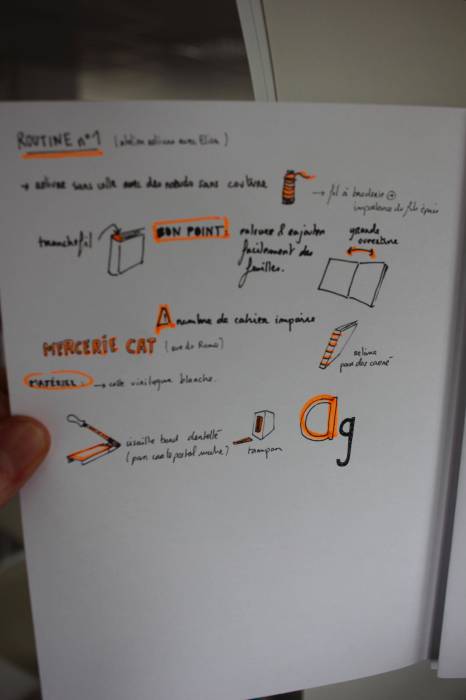 ROUTINE n°1 (atelier reliure avec Elise)
→ reliure sans colle avec des nœuds sans couture
→ fil à broderie ⊕
importance du fil épais
tranchefil
BON POINT: enlever & rajouter
facilement des
feuilles.
grande
ouverture
A nombre de cahier impaire
MERCERIE CAT (rue de Rome)
reliure
pour dos carré
MATÉRIEL. → colle vinilique blanche.
cisaille bord dentellé
(pour carte postal moche)
tampon
ag